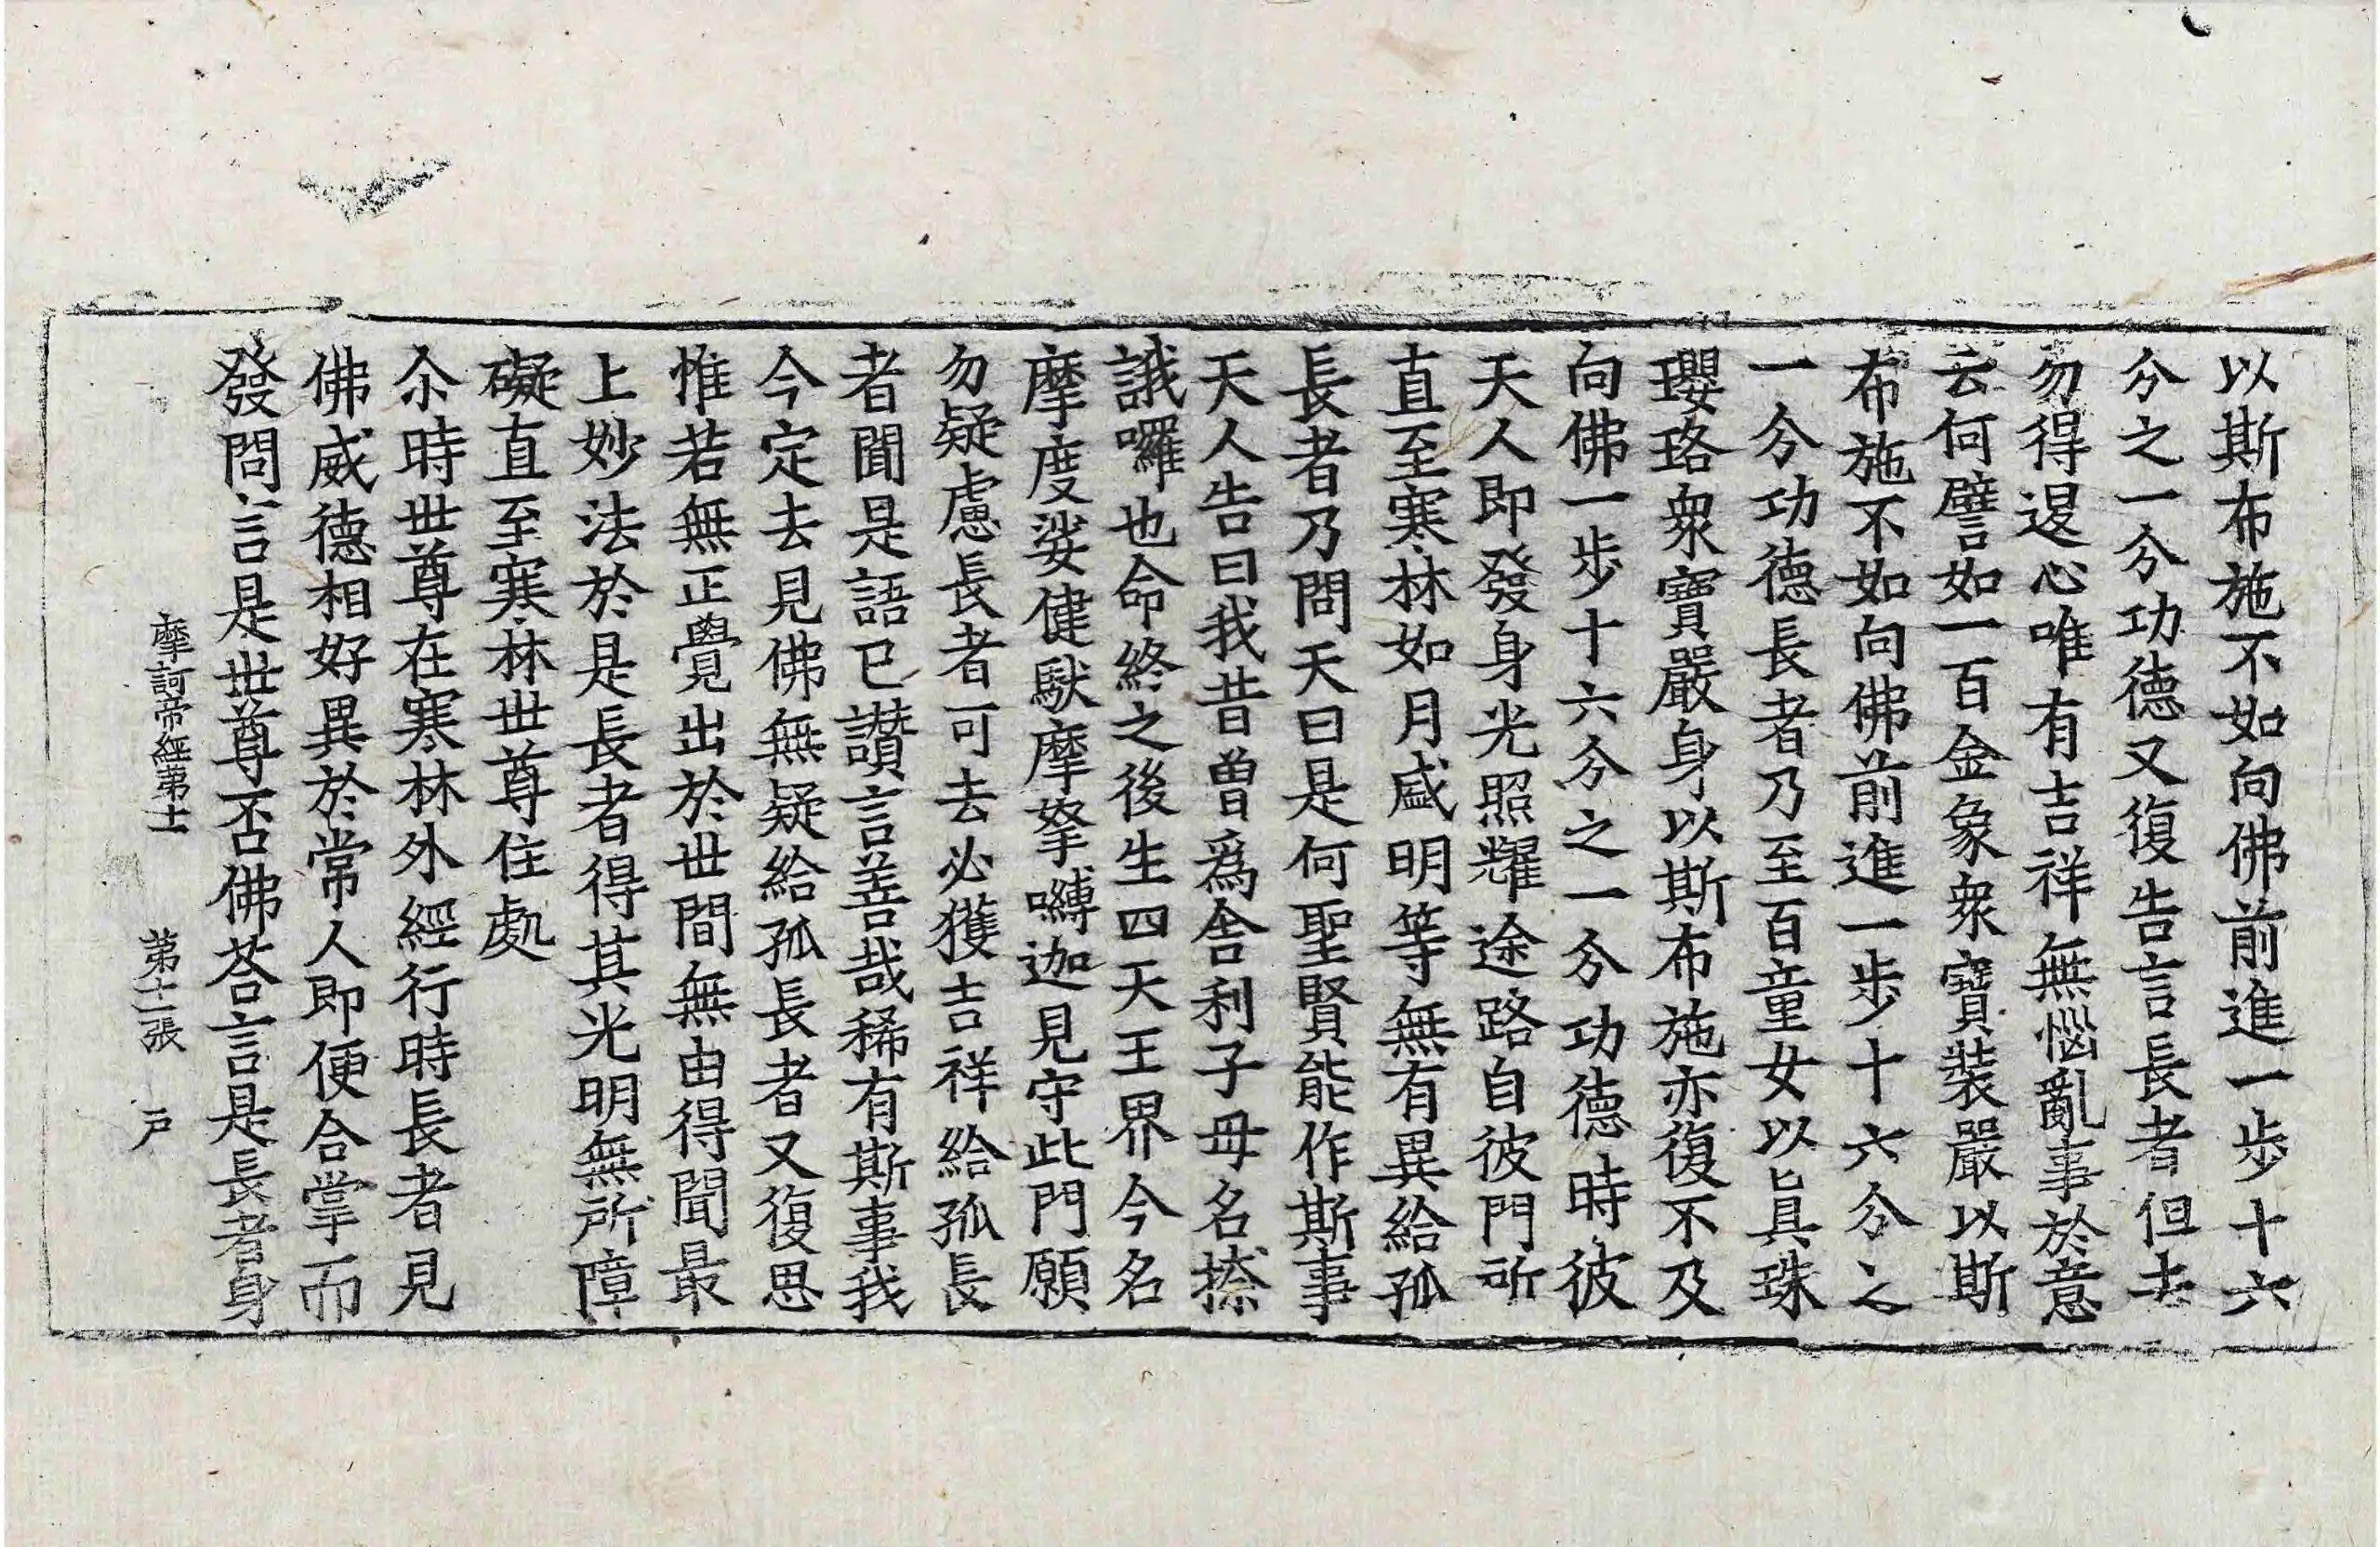 以斯布施不如向佛前進一步十六
分之一分功德又復告言長者但去
勿得退心唯有吉祥無惱亂事於意
云何譬如一百金象衆寶裝嚴以斯
布施不如向佛前進一步十六分之
一分功德長者乃至百童女以眞珠
瓔珞衆寶嚴身以斯布施亦復不及
向佛一步十六分之一分功德時彼
天人即發身光照耀途路自彼門所
直至寒林如月盛明等無有異給孤
長者乃問天曰是何聖賢能作斯事
天人告曰我昔曽爲舍利子母名捺
誐囉也命終之後生四天王界今名
摩度娑健駄摩拏嚩迦見守此門願
勿疑慮長者可去必獲吉祥給孤長
者聞是語已讃言善哉稀有斯事我
今定去見佛無疑給孤長者又復思
惟若無正覺出於世間無由得聞最
上妙法於是長者得其光明無所障
礙直至寒林世尊住處
尒時世尊在寒林外經行時長者見
佛威德相好異於常人即便合掌而
發問言是世尊否佛荅言是長者身
摩訶帝經第十一 第十二張 戸